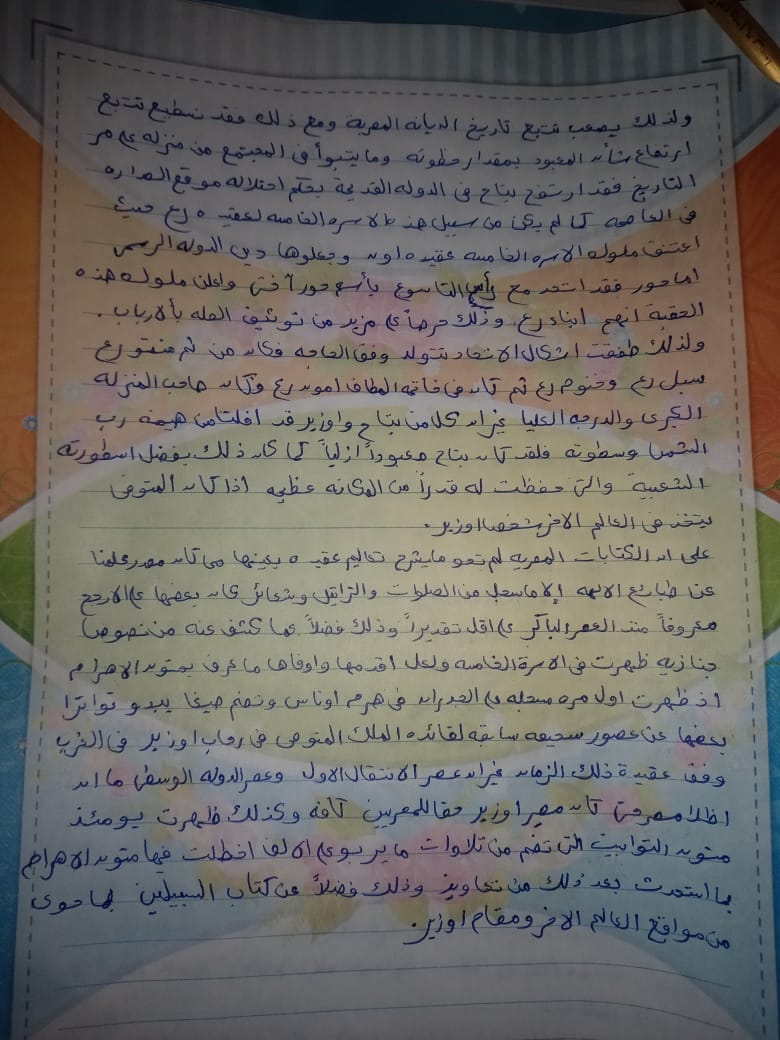 ولذلك يصعب تتبع تاريخ الديانه المصرية ومع ذلك فقد نستطيع تتبع
ارتفاع شأن المعبود بمقدار حظوته وما يتبوأ فى المجتمع من منزله على مر
التاريخ فقد ارتفع بتاح فى الدوله القديمة بحكم احتلاله موقع الصداره
فى العاصمه كما لم يكن من سبيل هذا الاسره الخامسه لعقيده رع حيث
اعتنق ملوك الاسره الخامسه عقيده اون وجعلوها دين الدوله الرسمى
اما حور فقد اتحد مع رأس التاسوع بأسم حور آختى واعلن ملوك هذه
الحقبة انهم ابناء رع وذلك حرصاً على مزيد من توثيق الصله بالأرباب .
ولذلك طفقت اشكال الاتحاد تتولد وفق الحاجه فكان من ثم منتو رع
سبك رع وخنوم رع ثم كان فى خاتمه المطاف امون رع وكان صاحب المنزله
الكبرى والدرجه العليا غير ان كلا من بتاح واوزير قد افلتا من هيمنه رب
الشمس وسطوته فلقد كان بتاح معبوداً ازلياً كما كان ذلك بفضل اسطورته
الشعبية والتى حفظت له قدراً من المكانه عظيمه اذا كان المتوفى
يتخذ فى العالم الاخر شخصا اوزير .
على ان الكتابات المصريه لم تعو ما يشرح تعاليم عقيده بعينها من كان مصدر علمنا
عن طبائع الالهه إلا ما سجل من الصلوات والتراتيل وشعائر كان بعضها على الارجح
معروفاً منذ العصر الباكر على اقل تقديراً وذلك فضلاً عما كشف عنه من نصوص
جنازيه ظهرت فى الاسرة الخامسه ولعل اقدمها واوفاها ما عرف بمتون الاهرام
اذ ظهرت اول مره مسجله على الجدران فى هرم اوناس وتضم صيغا يبدو تواترا
بعضها عن عصور سحيقه سابقه لفائده الملك المتوفى فى رحاب اوزير فى الغرب
وفق عقيدة ذلك الزمان غير ان عصر الانتقال الاول وعصر الدوله الوسطى ما ان
اظلا مصر حتى كان مصير اوزير حقا للمصريين كافه وكذلك ظهرت يومئذ
متون التوابيت التى تضم من تلاوات ما يربو على الالف اختلت فيها متون الاهرام
بما استحدث بعد ذلك من تعاويذ وذلك فضلاً عن كتاب السبيلين بما حوى
من مواقع العالم الاخر ومقام اوزير .